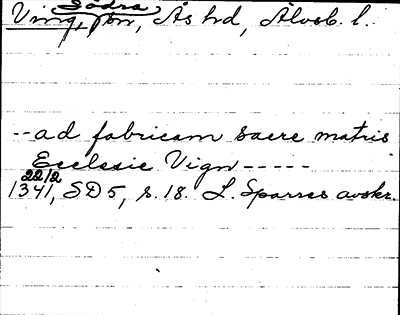 Södra
Ving, sn, Ås hd, Älvsb. l.
--ad fabricam sacre matris
Ecclesie Vign-----
22/2
1341, SD 5, s. 18. L. Sparres avskr.